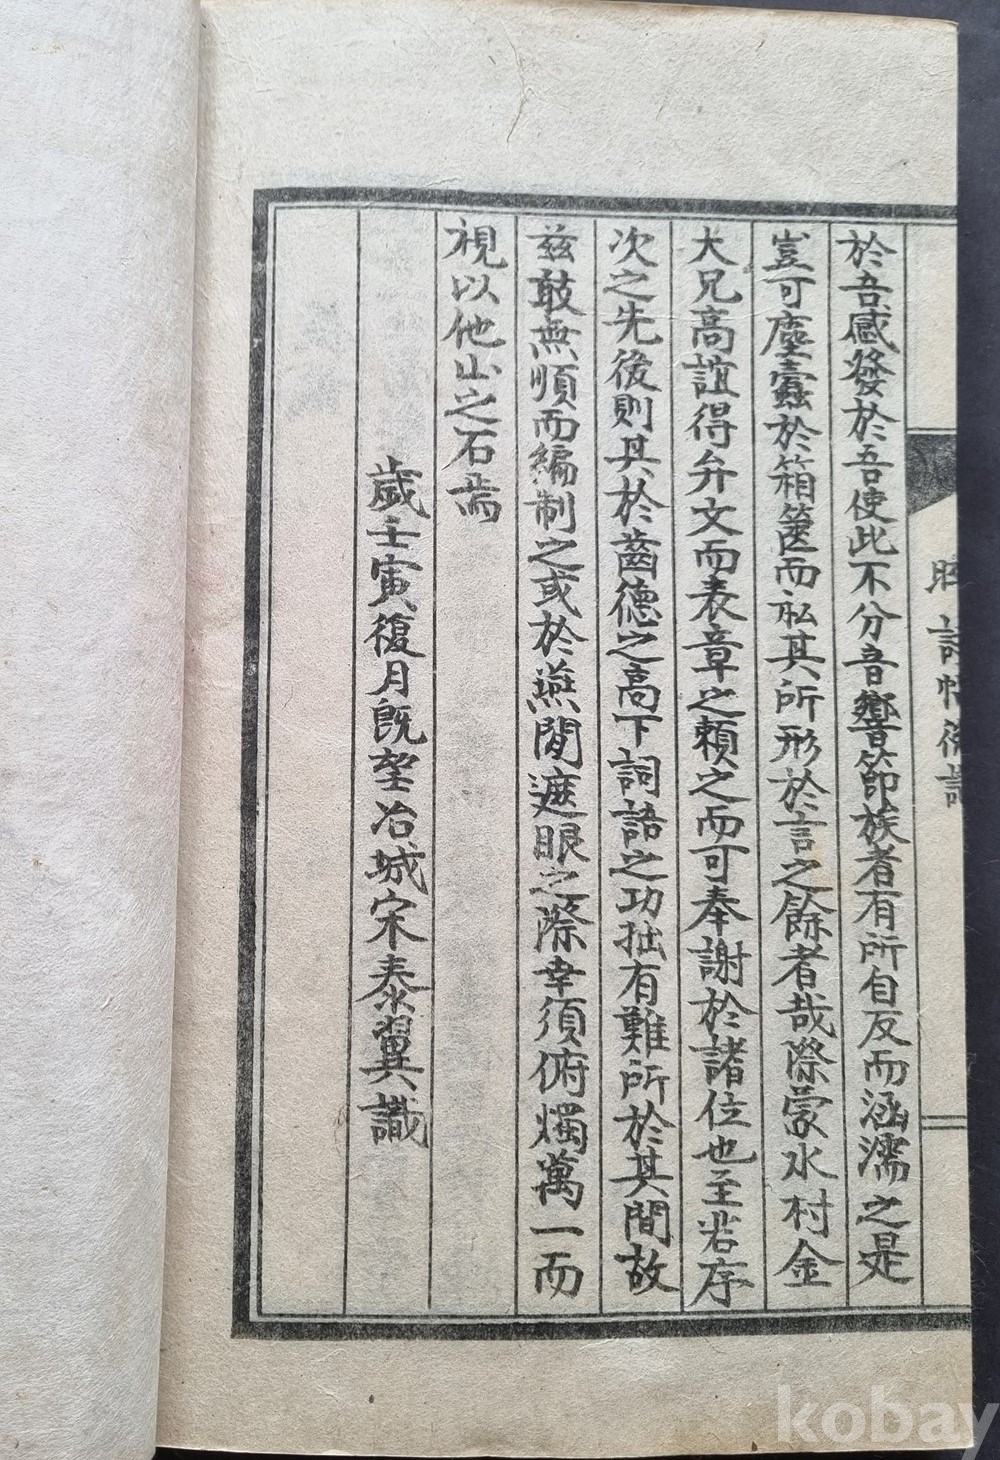 於吾感發於吾使此不分音響節族者有所自反而涵濡之是
豈可塵蠹於箱篋而私其所形於言之餘者哉際蒙水村金
大兄高誼得弁文而表章之賴之而可奉謝於諸位也至若序
次之先後則其於齒德之高下詞語之功拙有難所於其間故
玆敢無順而編制之或於燕閒遮眼之際幸須俯燭萬一而
視以他山之石焉
歲壬寅復月旣望冶城宋泰翼識
kobay